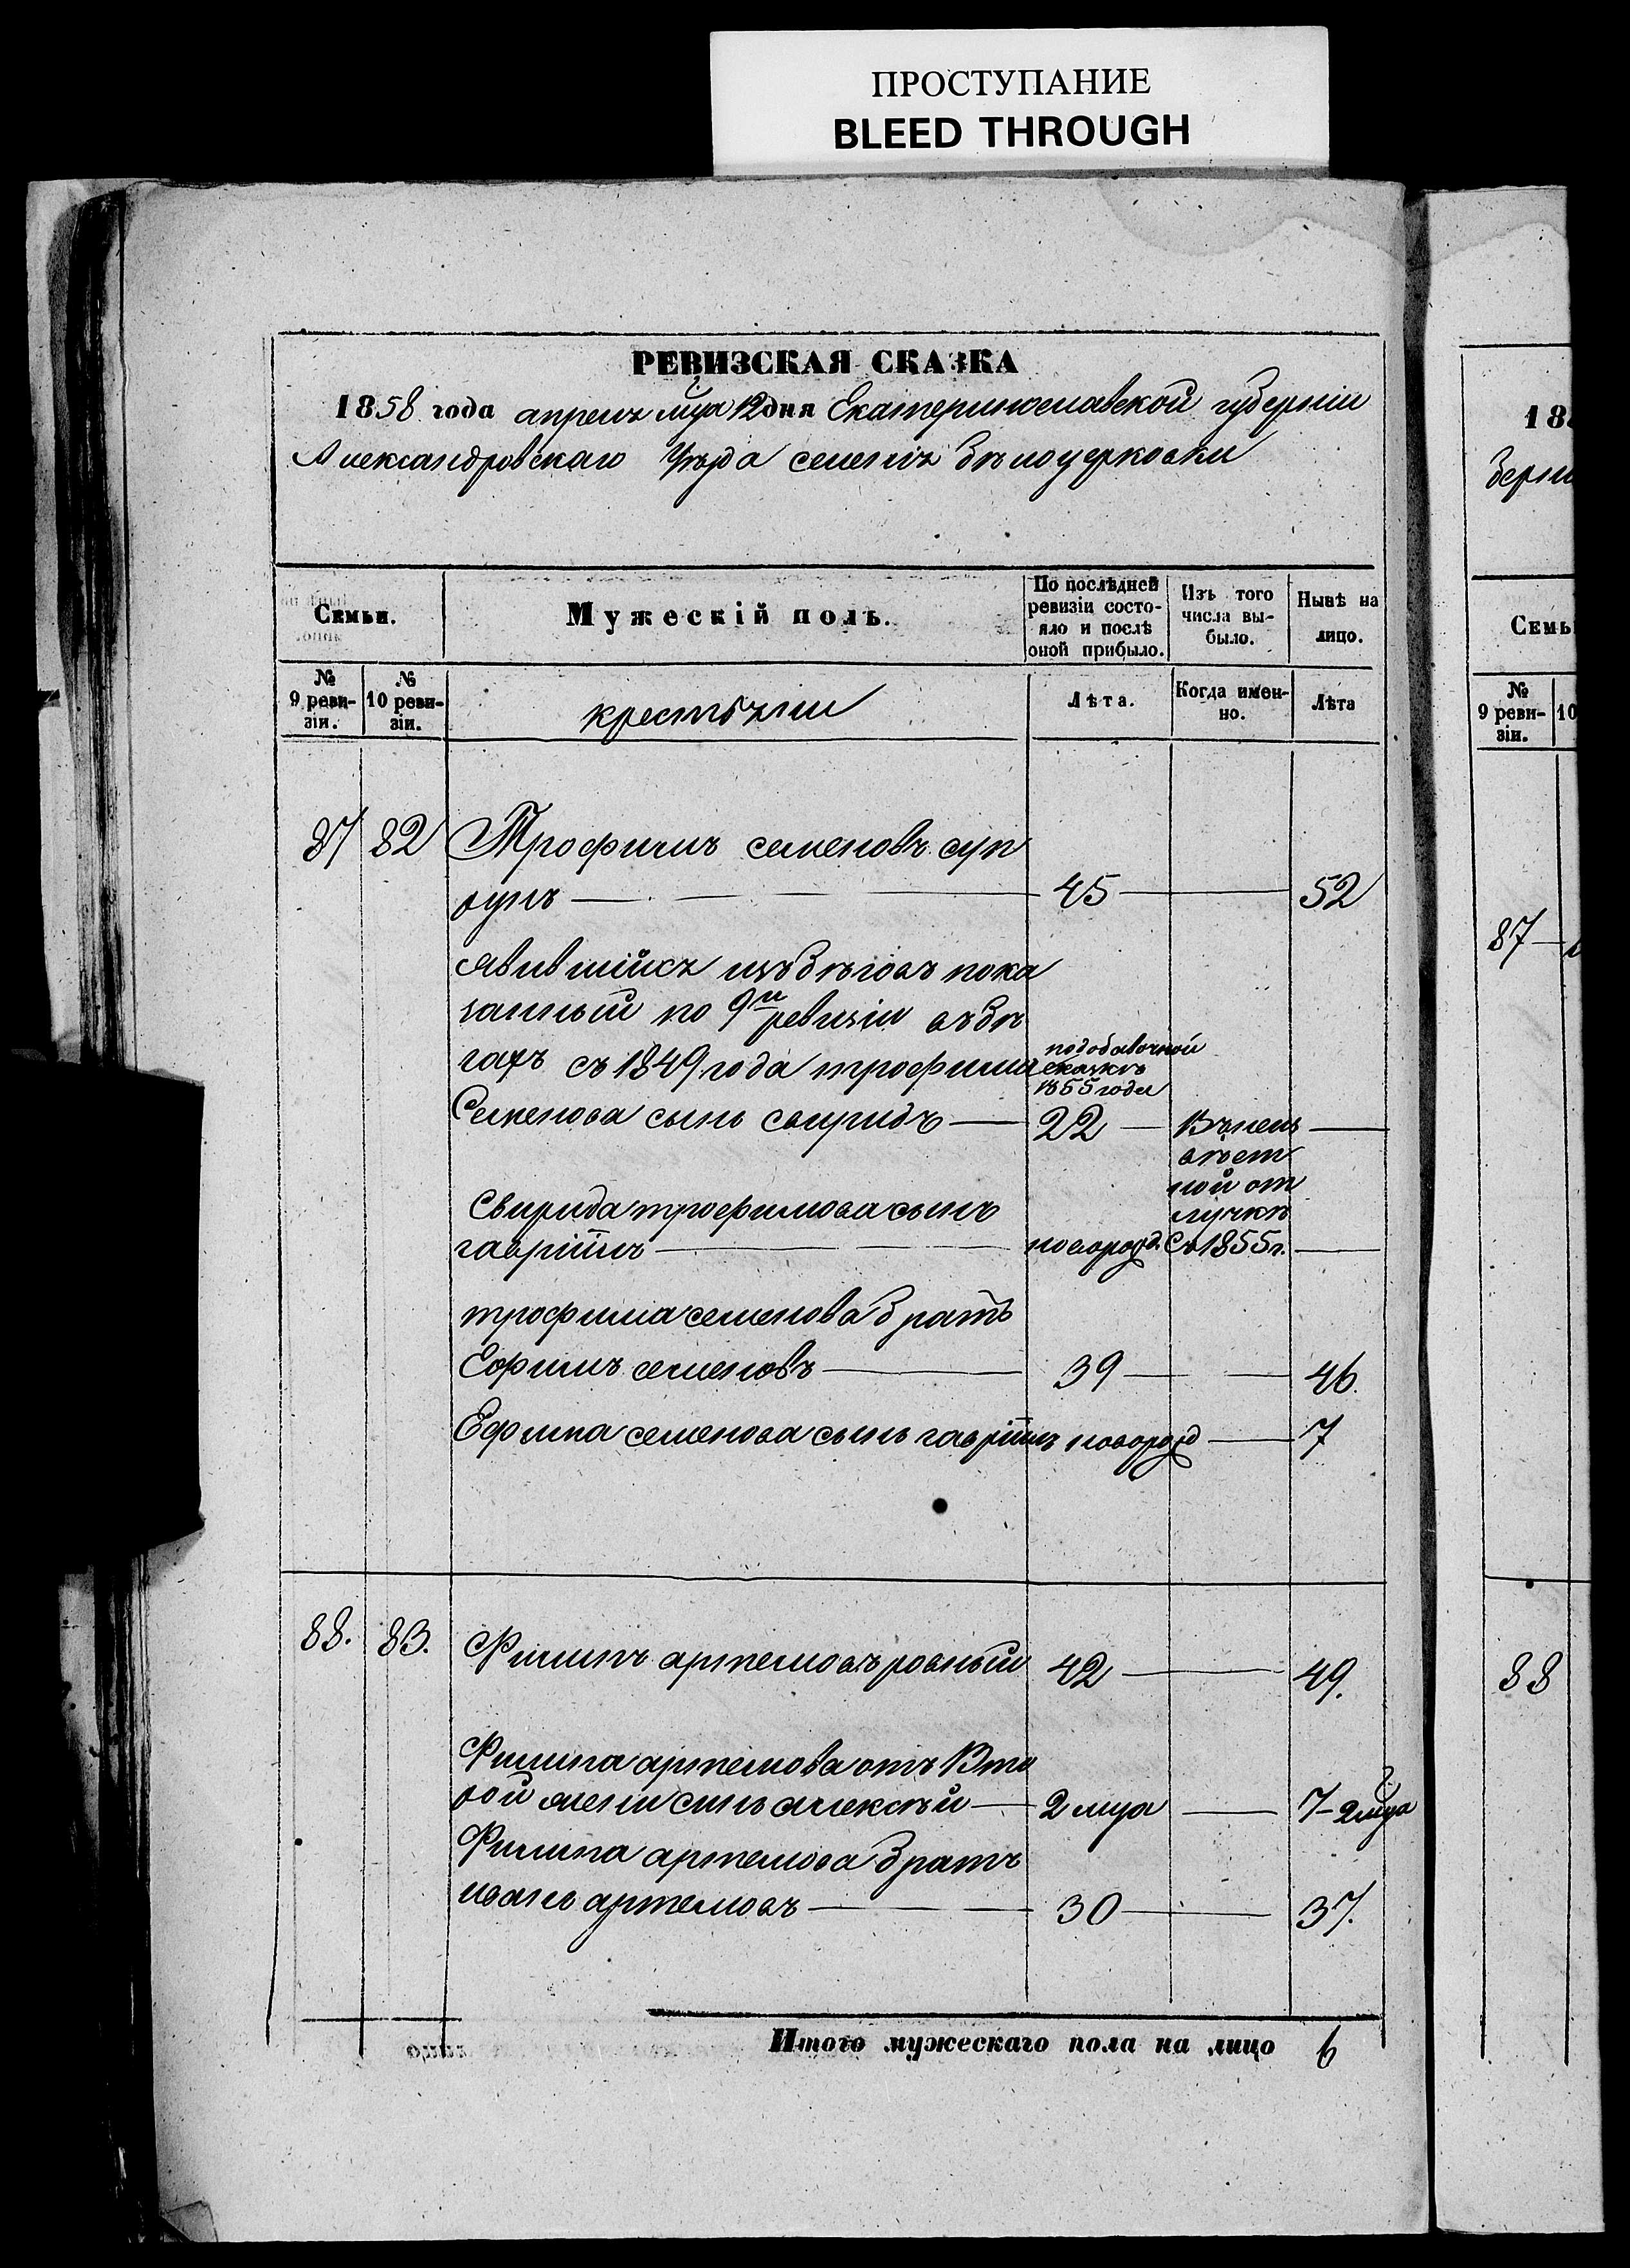 ПРОСТУПАНИЕ
BLEED THROUGH
РЕВИЗСКАЯ СКАЗКА
1858 года апреля мца 12 дня Екатеринославской губерніи
Александровскаго Уѣзда селенія бѣлоцерковки
Семьи.
Мужескій полъ.
По послѣдней ревизіи состо-
яло и послѣ
оной прибыло.
Изъ того
числа вы-
было.
Нынѣ на
лицо.
№
9 реви-
зіи.
№
10 реви-
зіи.
крестьяни
Лѣта.
Когда имен-
но.
Лѣта
87 82 Трофимъ семеновъ суп
рунъ 45 52
явившійся изъ бѣговъ пока
занный по 9й ревизіи въ бѣ
гахъ съ 1849 года трофима
по добавочной
сказкѣ
1855 года
Семенова сынъ свиридъ 22
Въ неиз
вѣст
ной от
лучкѣ
съ 1855 г.
Свирида трофимова сынъ
гавріилъ новорожд.
трофима семенова братъ
Ефимъ семеновъ 39 46.
Ефима семенова сынъ гавріилъ новорожд 7
88. 83. Филипъ артемовъ ровный 42 49.
Филипа артемова отъ Вто
рой жени синъ алексѣй 2 мца 7-2 мца
Филипа артемова братъ
иванъ артемовъ 30 37.
Итого мужескаго пола на лицо 6
18
берні
Семь
№
9 реви-
зіи.
10
87
88